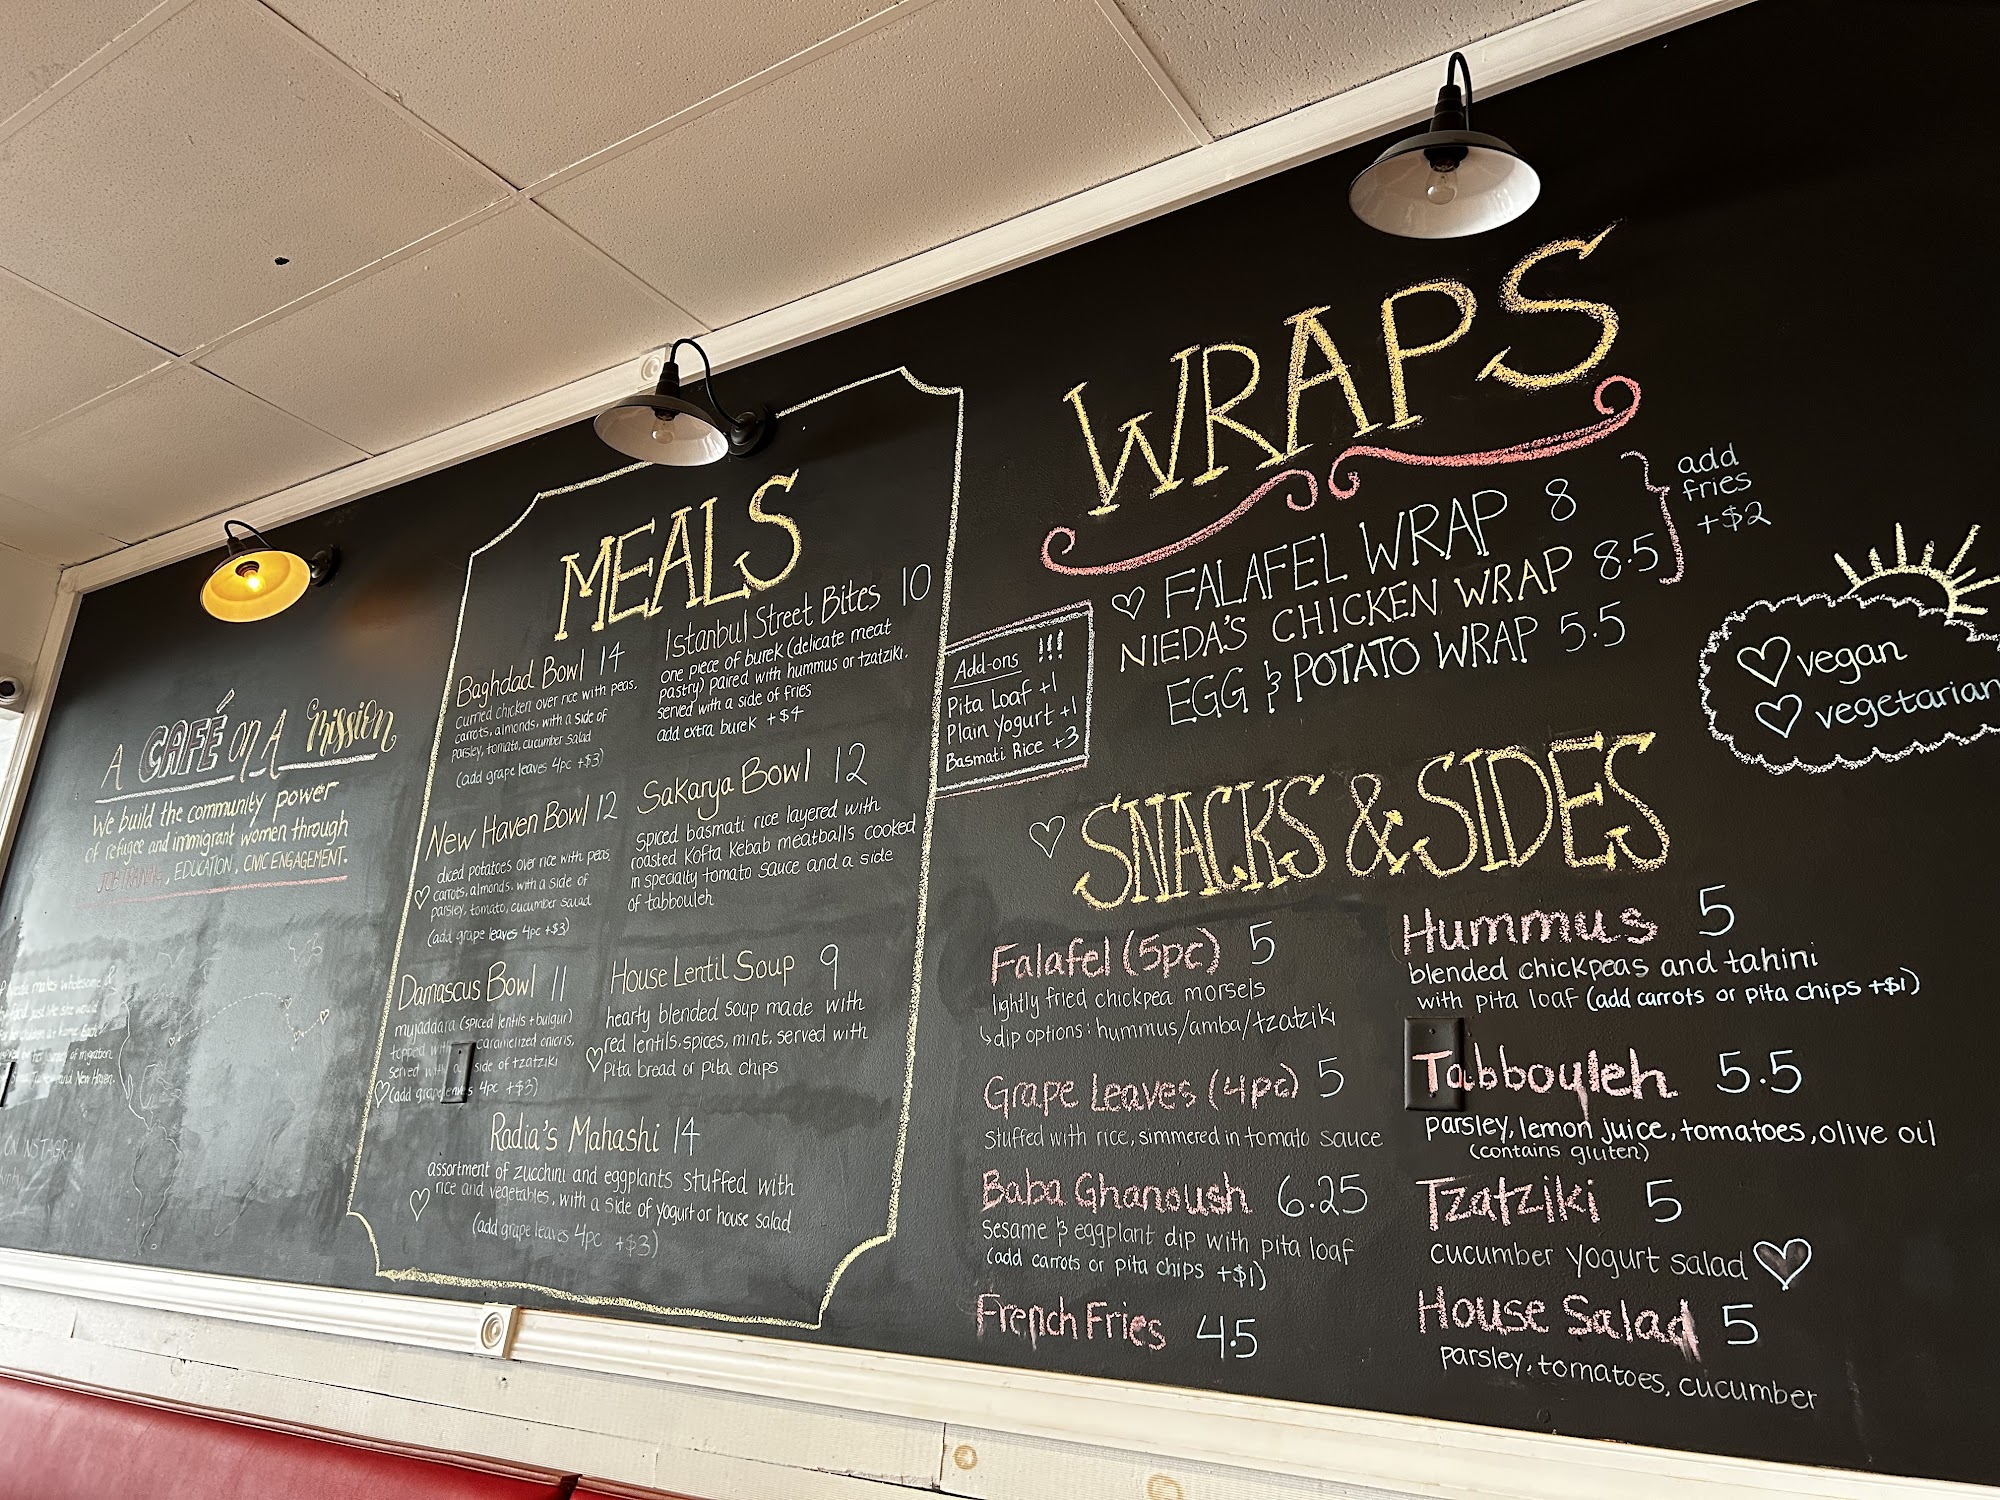 A CAFÉ on A mission
We build the community power
of refugee and immigrant women through
JOB TRAINING, EDUCATION, CIVIC ENGAGEMENT.
makes wholesome &
food just like she would
for her children at home. Each
of migration
and New Haven.
ON INSTAGRAM
MEALS
Baghdad Bowl 14
curried chicken over rice with peas,
carrots, almonds, with a side of
parsley, tomato, cucumber salad
(add grape leaves 4pc +$3)
New Haven Bowl 12
diced potatoes over rice with peas
carrots, almonds, with a side of
parsley, tomato, cucumber salad
(add grape leaves 4pc +$3)
Damascus Bowl 11
mujaddara (spiced lentils + bulgur)
topped with caramelized onions,
served with a side of tzatziki
(add grape leaves 4pc +$3)
Istanbul Street Bites 10
one piece of burek (delicate meat
pastry) paired with hummus or tzatziki.
served with a side of fries
add extra burek +$4
Sakarya Bowl 12
spiced basmati rice layered with
roasted Kofta Kebab meatballs cooked
in specialty tomato sauce and a side
of tabbouleh
House Lentil Soup 9
hearty blended soup made with
red lentils, spices, mint, served with
pita bread or pita chips
Radia's Mahashi 14
assortment of zucchini and eggplants stuffed with
rice and vegetables, with a side of yogurt or house salad
(add grape leaves 4pc +$3)
Add-ons !!!
Pita Loaf +1
Plain Yogurt +1
Basmati Rice +3
WRAPS
FALAFEL WRAP 8
NIEDA'S CHICKEN WRAP 8.5
EGG & POTATO WRAP 5.5
add
fries
+$2
vegan
vegetarian
SNACKS & SIDES
Falafel (5pc) 5
lightly fried chickpea morsels
↳dip options: hummus/amba/tzatziki
Grape Leaves (4pc) 5
stuffed with rice, simmered in tomato sauce
Baba Ghanoush 6.25
sesame & eggplant dip with pita loaf
(add carrots or pita chips +$1)
French Fries 4.5
Hummus 5
blended chickpeas and tahini
with pita loaf (add carrots or pita chips +$1)
Tabbouleh 5.5
parsley, lemon juice, tomatoes, olive oil
(contains gluten)
Tzatziki 5
cucumber yogurt salad
House Salad 5
parsley, tomatoes, cucumber